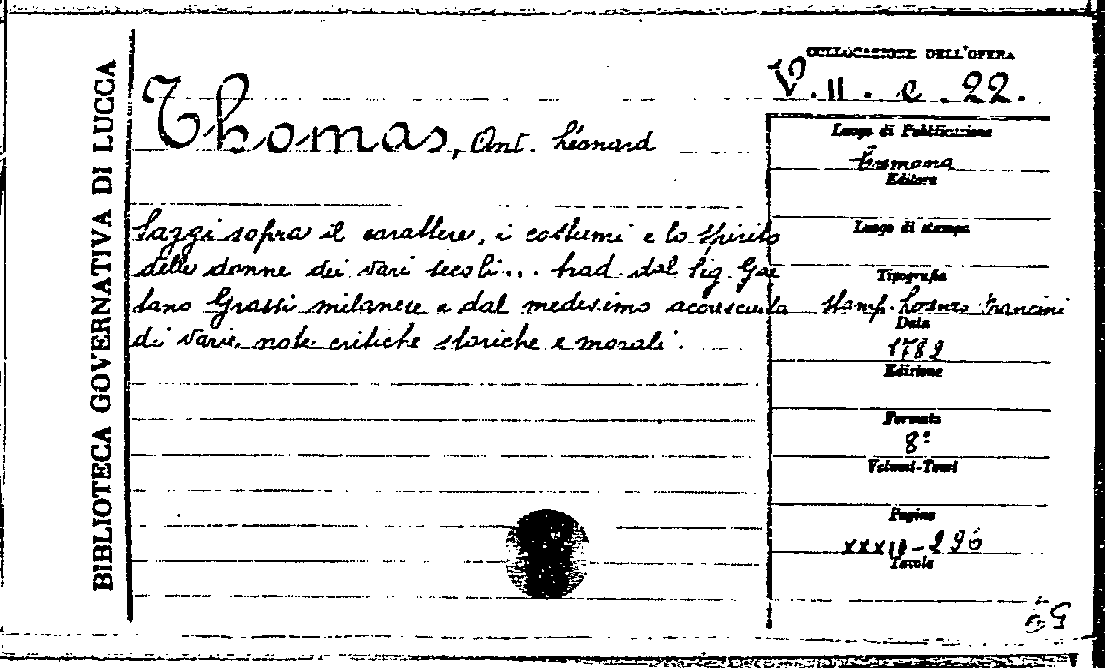 BIBLIOTECA GOVERNATIVA DI LUCCA
COLLOCAZIONE DELL'OPERA
V. II. e. 22.
Thomas, Ant. Léonard
Luogo di Pubblicazione
Cremona
Editore
Saggi sopra il carattere, i costumi e lo spirito
delle donne dei vari secoli... trad. dal sig. Gae
tano Grassi milanese e dal medesimo accresciuta
di varie note critiche storiche e morali.
Luogo di stampa
Tipografia
Stamp. Lorenzo Mancini
Data
1789
Edizione
Formato
8º
Volumi-Tomi
Pagine
296
Tavole